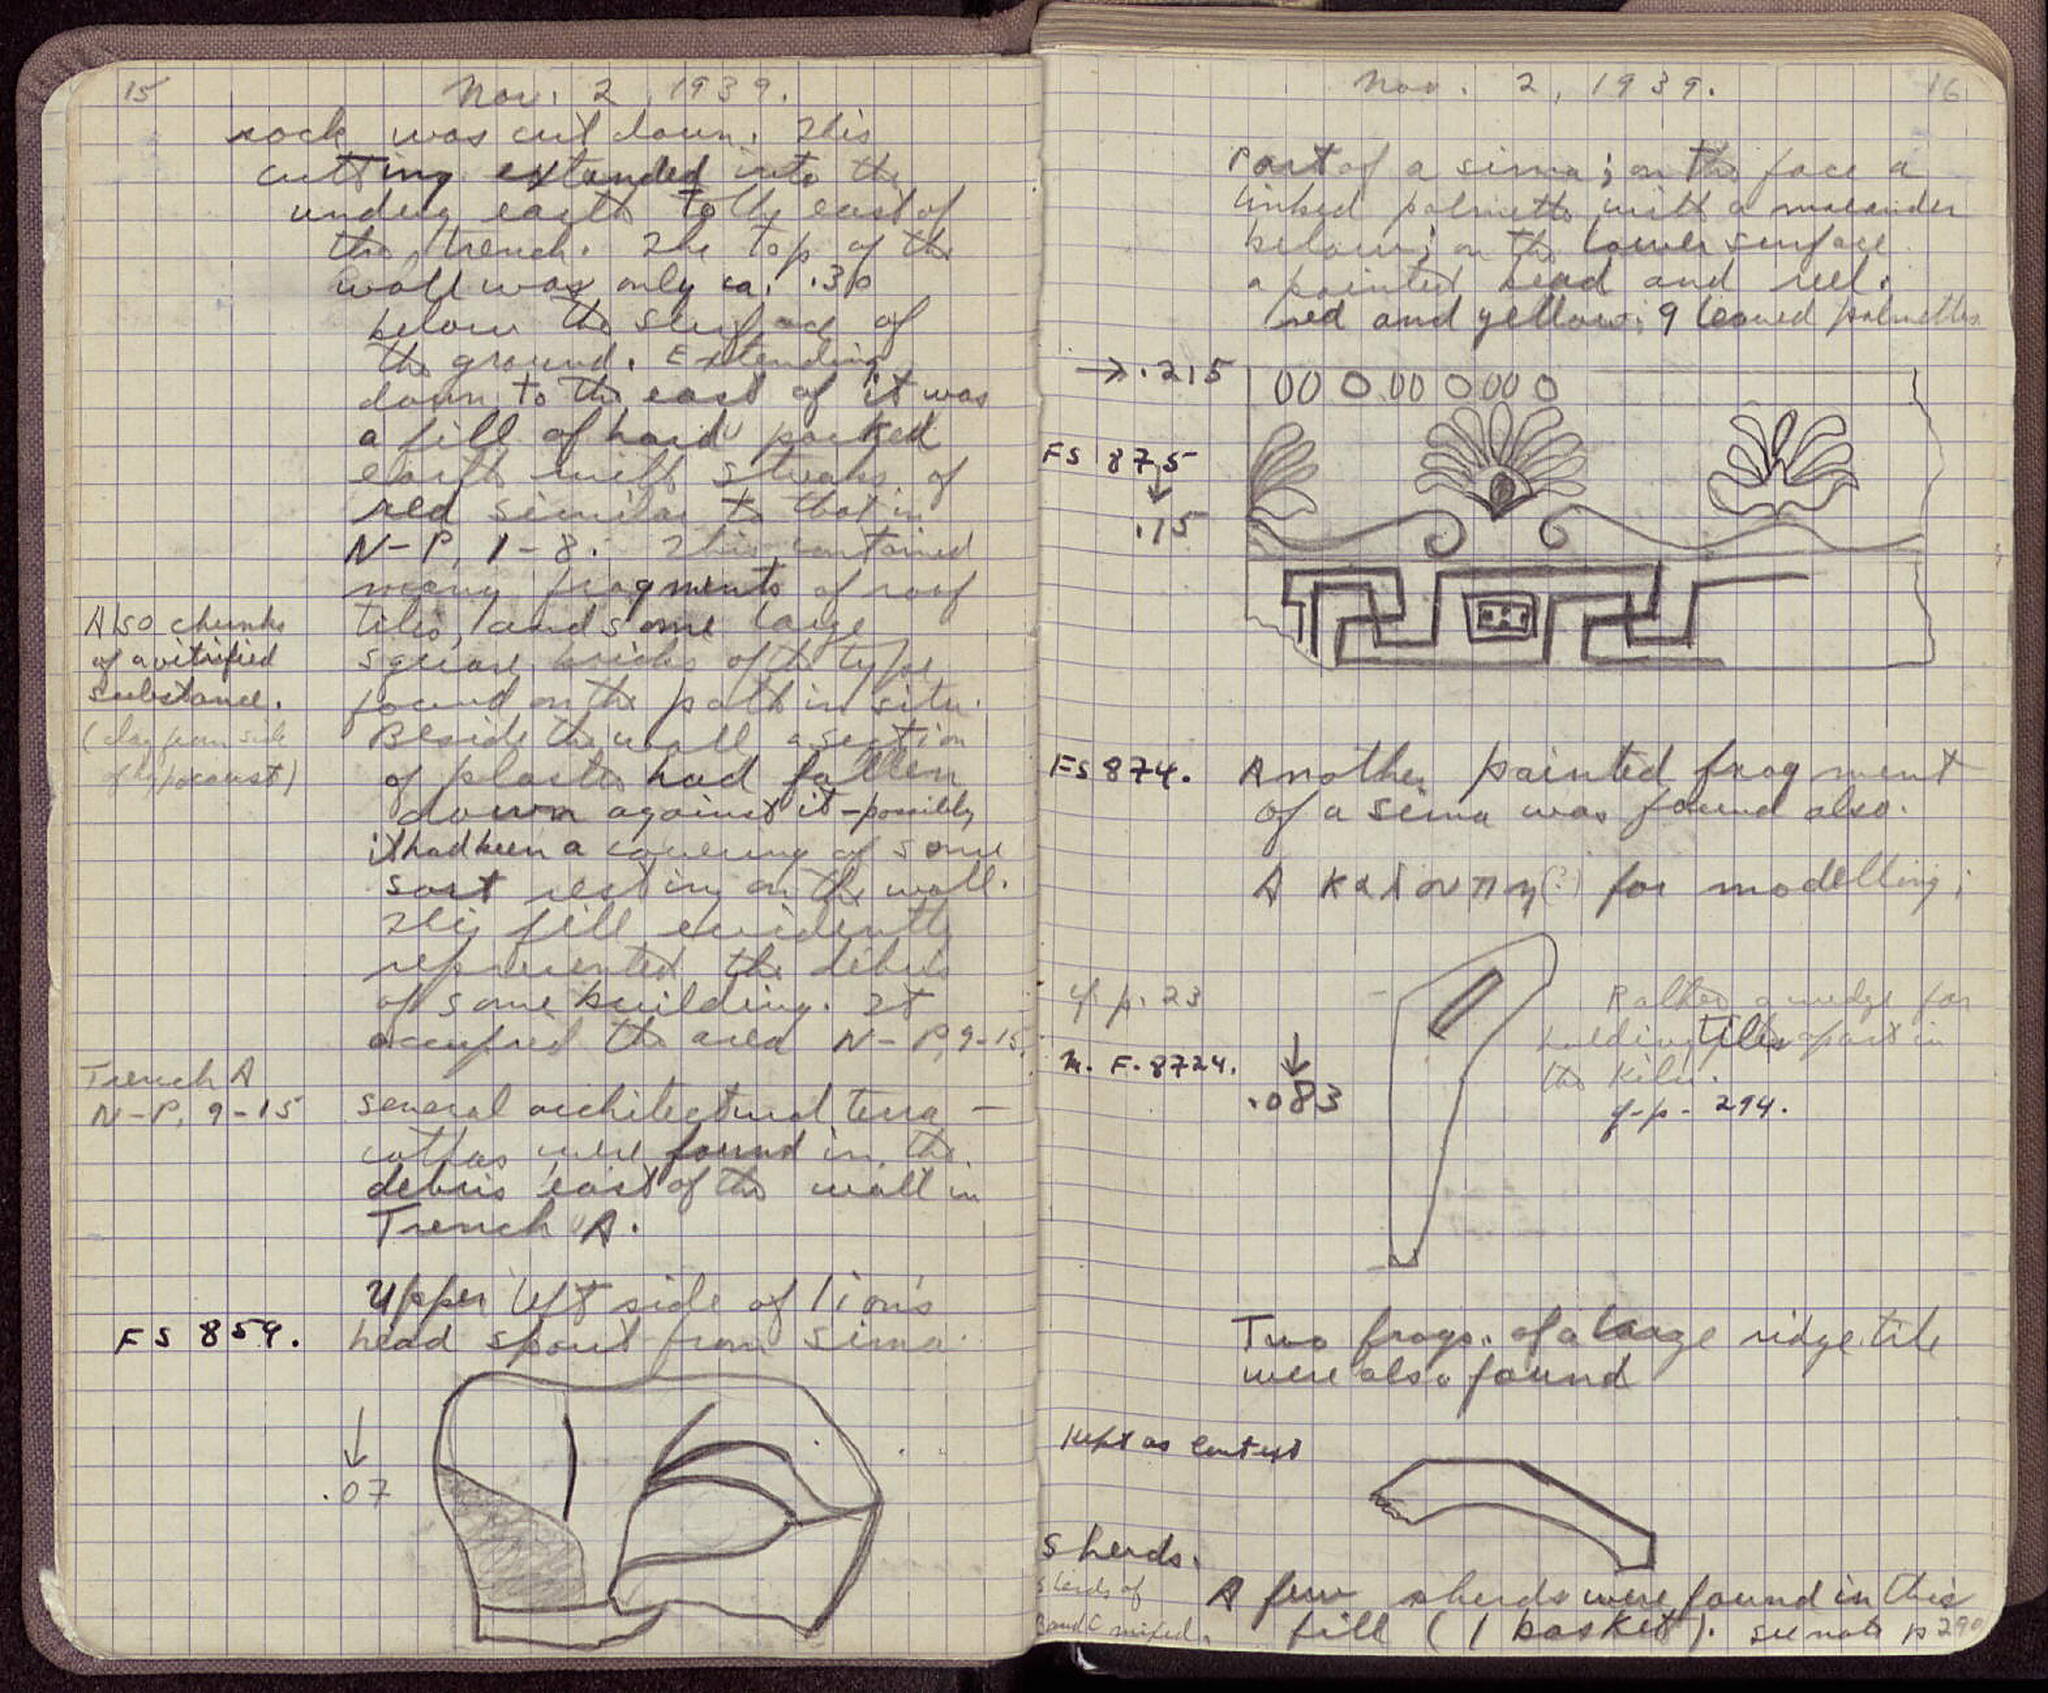 15
Nov. 2, 1939.
rock was cut down. This
cutting extended into the
underg earth to the east of
the trench. The top of the
wall was only ca. .30
below the surface of
the ground. Extending
down to the east of it was
a fill of hard packed
earth with streaks of
red similar to that in
N-P, 1-8. This contained
many fragments of roof
tiles, and some large
square bricks of the type
found on the path in situ.
Beside the wall a section
of plaster had fallen
down against it - possibly
it had been a covering of some
sort resting on the wall.
This fill evidently
represented the debris
of some building. It
occupied the area N-P, 9-15.
Also chunks
of a vitrified
substance.
(clay from side
of hypocaust)
Trench A
N-P, 9-15
several architectural terra-
cottas were found in the
debris east of the wall in
Trench A.
Upper left side of lion's
FS 859. head spout from sima.
.07
Nov. 2, 1939.
16
Part of a sima; on the face a
linked palmette with a maeander
below; on the lower surface
a painted bead and reel.
red and yellow; 9 leaved palmettes
→ .215
FS 875
.15
FS 874. Another painted fragment
of a sima was found also.
A καλούπη(?) for modelling;
cf. p. 23
M. F. 8724.
.083
Rather a wedge for
holding tiles apart in
the kiln.
cf. p. 294.
Two frags. of a large ridge tile
were also found
Kept as context
Sherds.
Sherds of
B and C mixed.
A few sherds were found in this
fill (1 basket). see note p 290